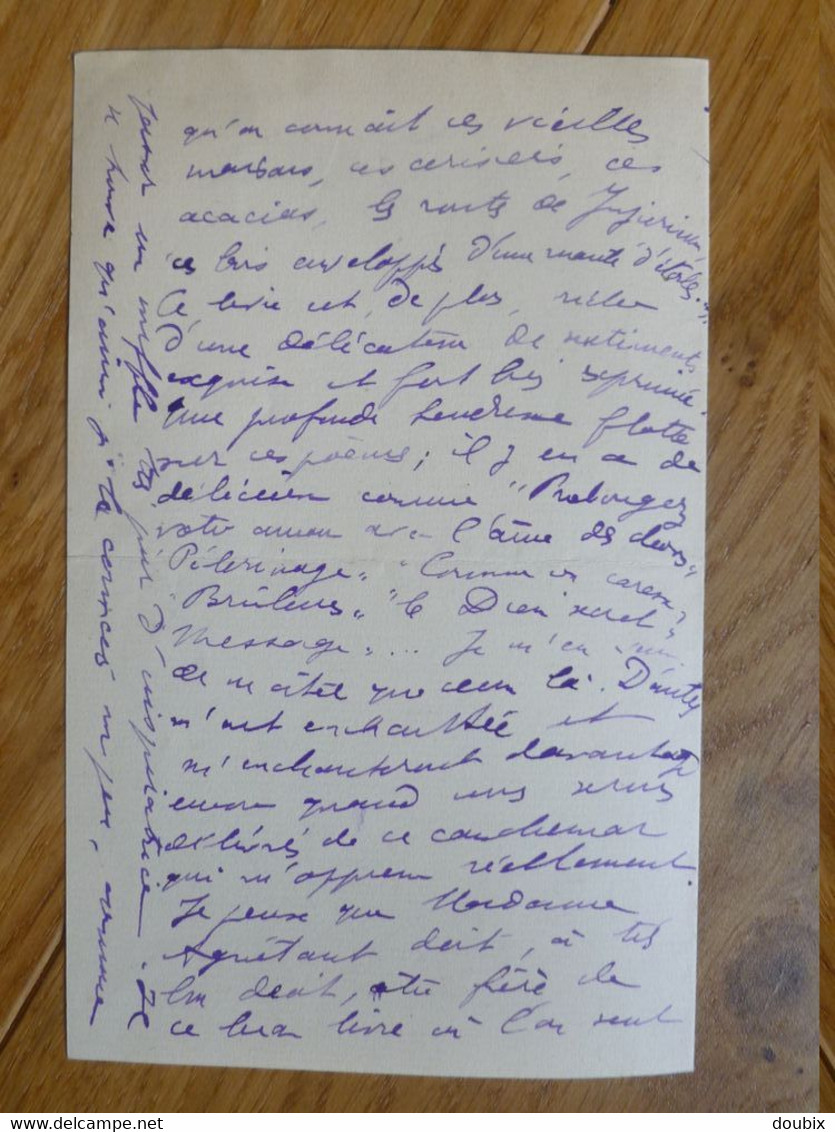 qu'on connaît ces vieilles
maisons, ces cerisiers, ces
acacias, les routes de Jujurieux,
ces bois enveloppés d'une mante d'étoiles...
Ce livre est, de plus, 
d'une délicatesse de sentiments
exquise et fort bien exprimée.
Une profonde tendresse flotte
sur ces poèmes; il y en a de
délicieux comme "Prolongez
votre amour avec l'âme des choses"
Pèlerinage" "Comme une caresse"
"Brûleurs" "le Dieu secret"
Message".... Je m'en 
de ne citer que ceux là. D'autres
m'ont enchantée et
m'enchanteront davantage
encore quand nous serons
délivrés de ce cauchemar
qui m'oppresse réellement.
Je pense que Madame
Agrétant doit, à très
bon droit, être fière de
ce beau livre où l'on sent
passer un souffle très pur d'inspiratrice. Je
ne trouve qu'ainsi je la connais un peu, comme
doubix